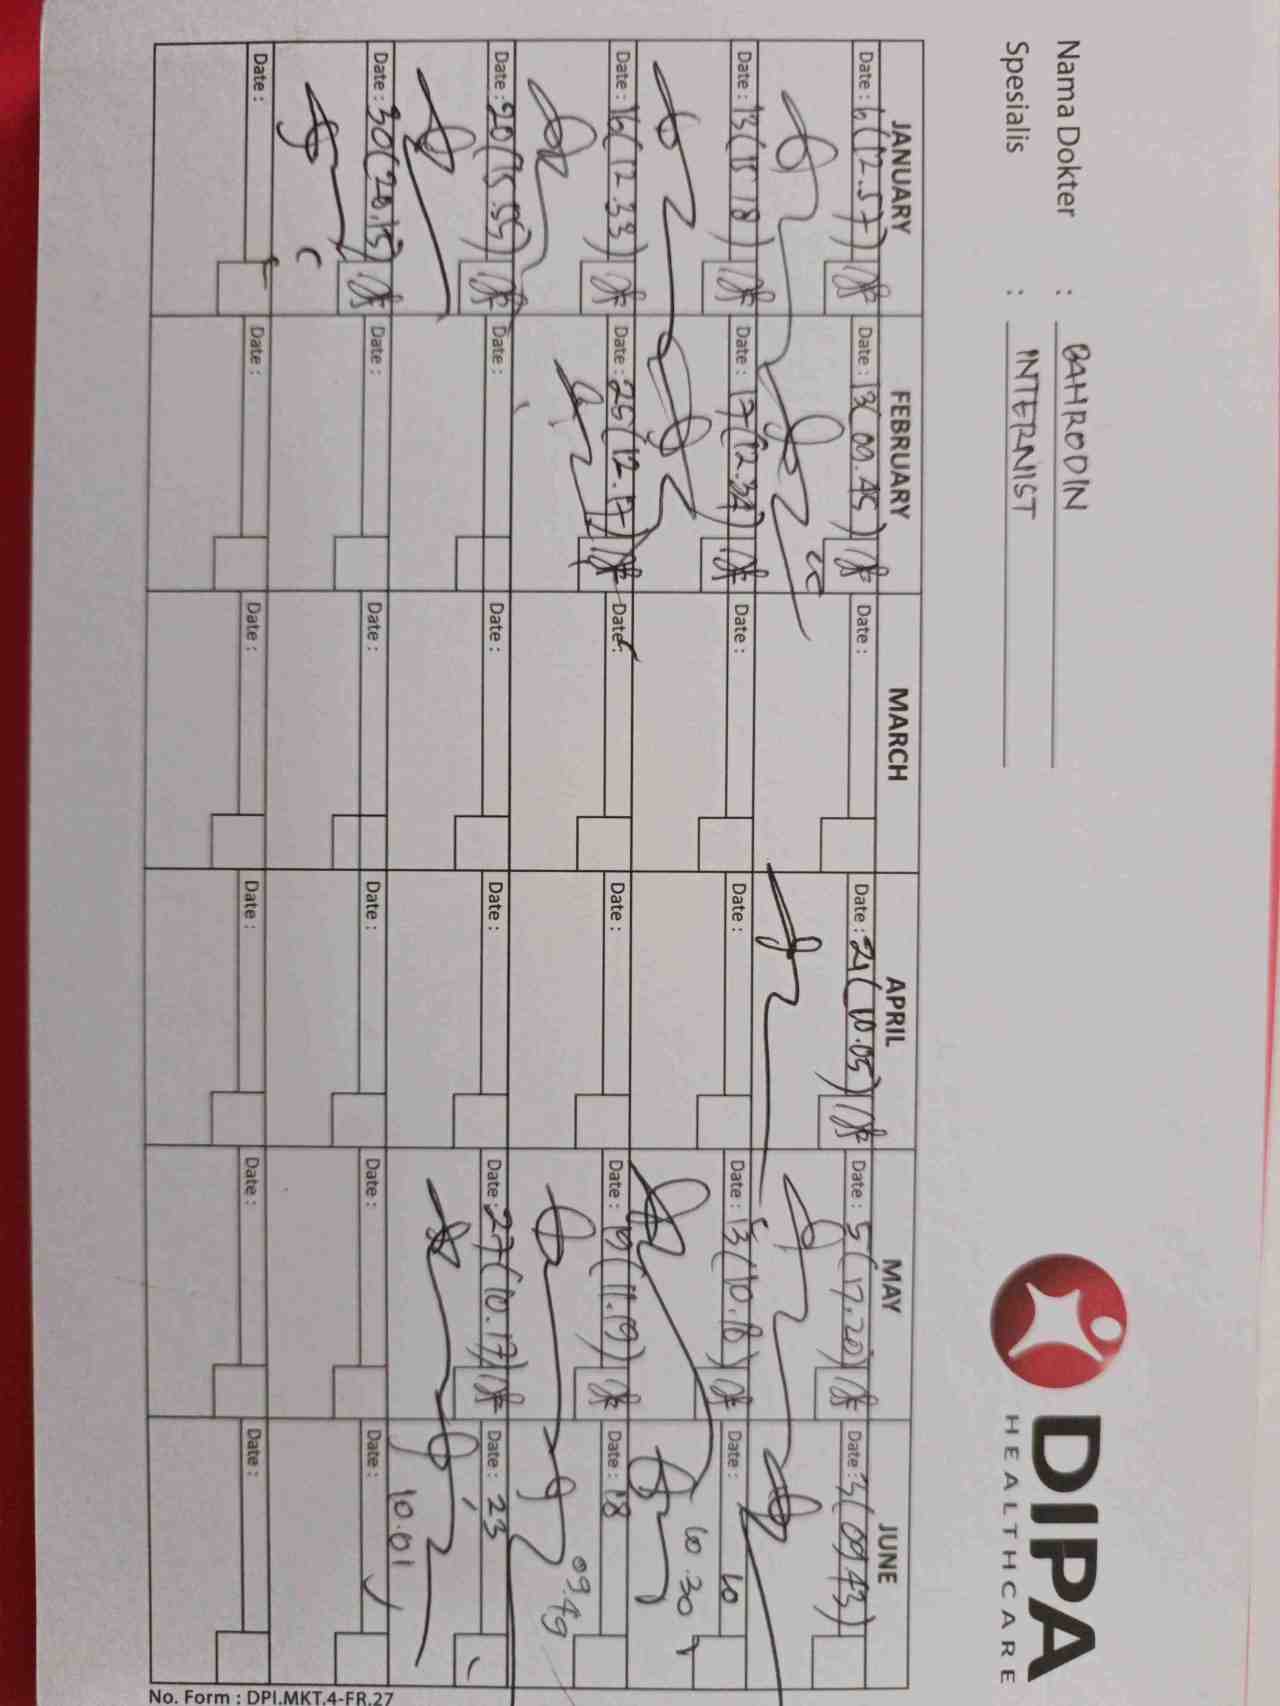 DIPA
HEALTHCARE
Nama Dokter : BAHRODIN
Spesialis : INTERNIST
JANUARY FEBRUARY MARCH APRIL MAY JUNE
Date : 6 (12.57) Date : 13 (09.45) Date : Date : 21 (10.05) Date : 5 (17.20) Date : 3 (09.43)
Date : 13 (15.18) Date : 17 (12.34) Date : Date : Date : 13 (10.18) Date : 10
10.30
Date : 16 (12.33) Date : 25 (12.17) Date : Date : Date : 19 (11.19) Date : 18
09.49
Date : 20 (15.55) Date : Date : Date : Date : 27 (10.17) Date : 23
10.01
Date : 30 (20.15) Date : Date : Date : Date : Date :
Date : Date : Date : Date : Date : Date :
No. Form : DPI.MKT.4-FR.27